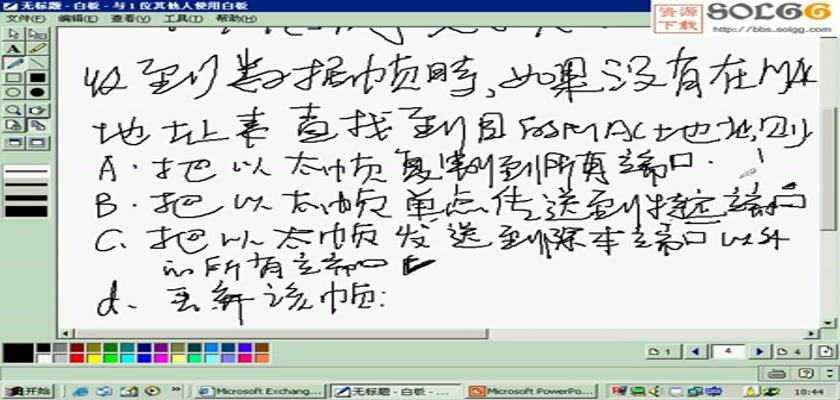 无标题 - 白板 - 与 1 位其他人使用白板
文件(F) 编辑(E) 查看(V) 工具(T) 帮助(H)
资源下载 SOLGG
http://bbs.solgg.com
收到数据帧时,如果没有在MAC
地址表查找到目的MAC地址,则
A. 把以太帧复制到所有端口.
B. 把以太帧单点传送到特定端口
C. 把以太帧发送到除本端口以外
的所有端口
d. 丢弃该帧:
1 4 4
开始 Microsoft Exchang... 无标题 - 白板 - ... Microsoft PowerPo... 18:44